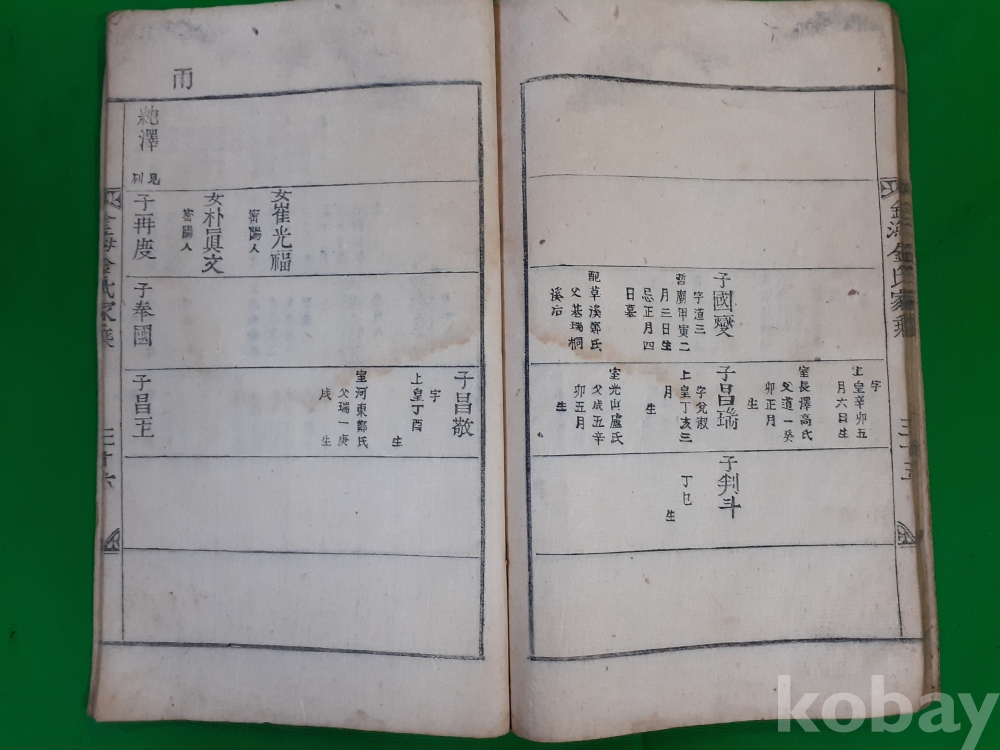 金海金氏家乘
三十五
字
上皇辛卯五
月六日生
室長澤高氏
父道一癸
卯正月
生
子國燮
字道三
哲廟甲寅二
月三日生
忌正月四
日墓
配草溪鄭氏
父基瑞桐
溪后
子昌瑞
字兌淑
上皇丁亥三
月
生
室光山盧氏
父成五辛
卯五月
生
子判斗
丁巳
生
子昌敬
字
上皇丁酉
生
室河東鄭氏
父瑞一庚
戌
生
女崔光福
密陽人
女朴眞文
密陽人
雨
純澤
見
子再度
子奉國
子昌玉
金海金氏家乘
三十六
kobay